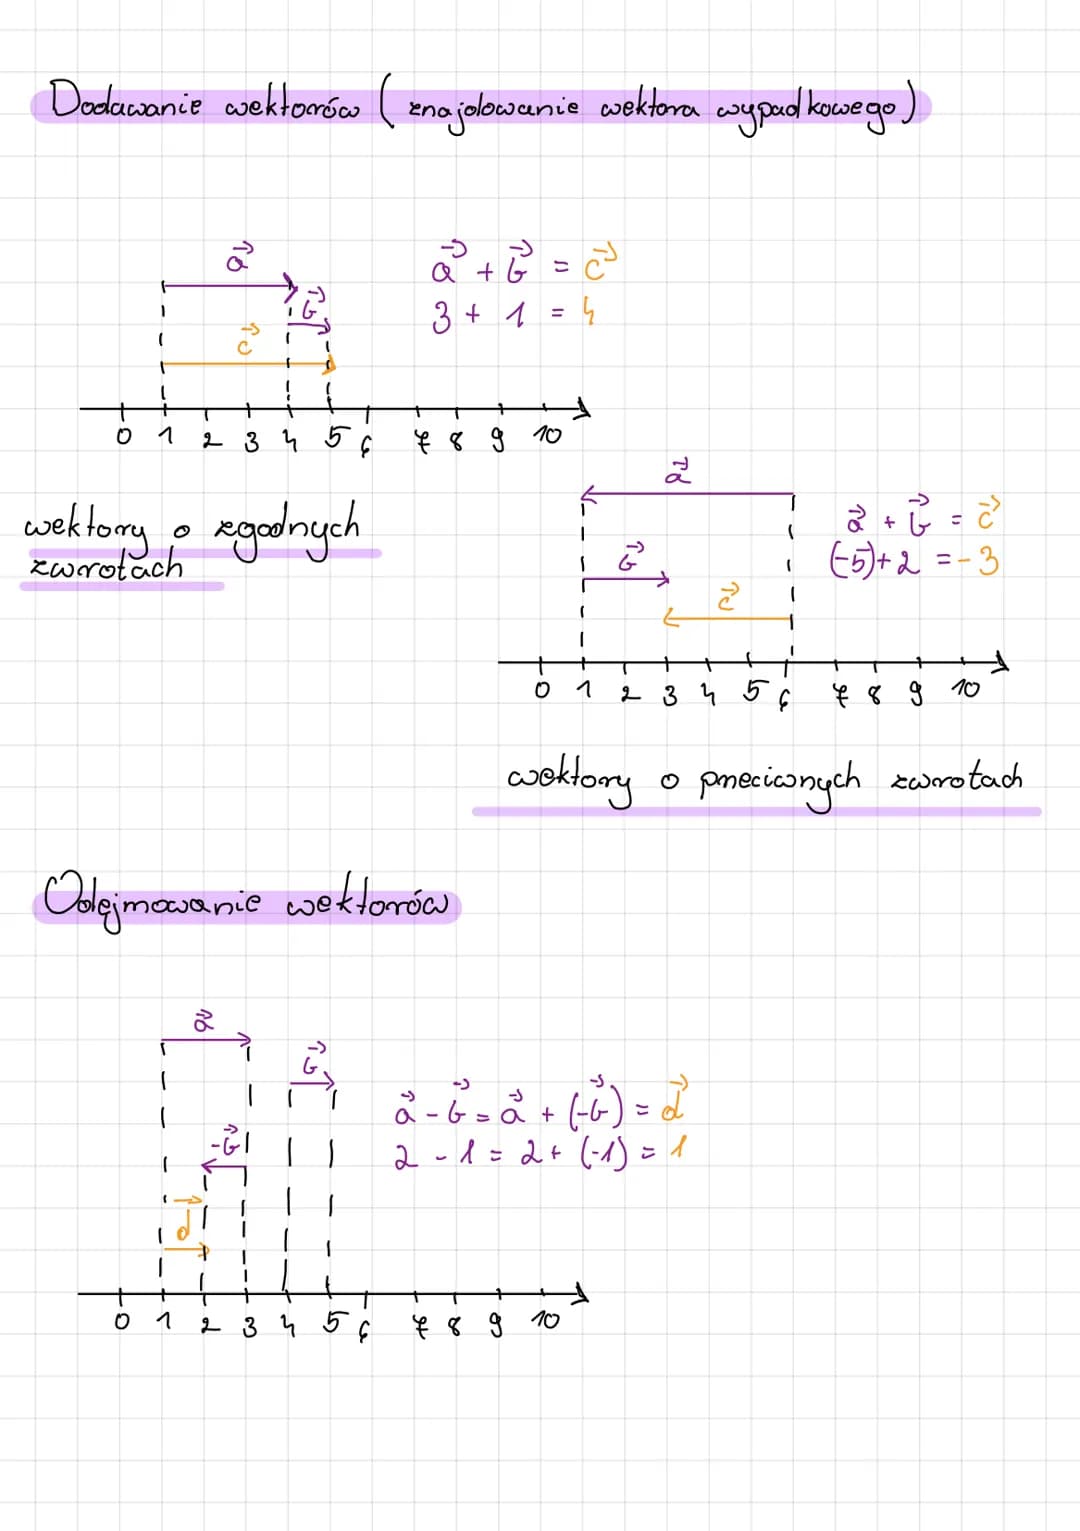 Dodawanie wektorów (znajdowanie wektora wypadkowego)
a⃗
a⃗ + b⃗ = c⃗
b⃗
3 + 1 = 4
c⃗
0 1 2 3 4 5 6 7 8 9 10
a⃗
wektory o zgodnych
zwrotach
a⃗ + b⃗ = c⃗
(-5)+2 = -3
b⃗
c⃗
0 1 2 3 4 5 6 7 8 9 10
wektory o przeciwnych zwrotach
Odejmowanie wektorów
a⃗
b⃗
a⃗ - b⃗ = a⃗ + (-b⃗) = d⃗
-b⃗
2 - 1 = 2 + (-1) = 1
d⃗
0 1 2 3 4 5 6 7 8 9 10